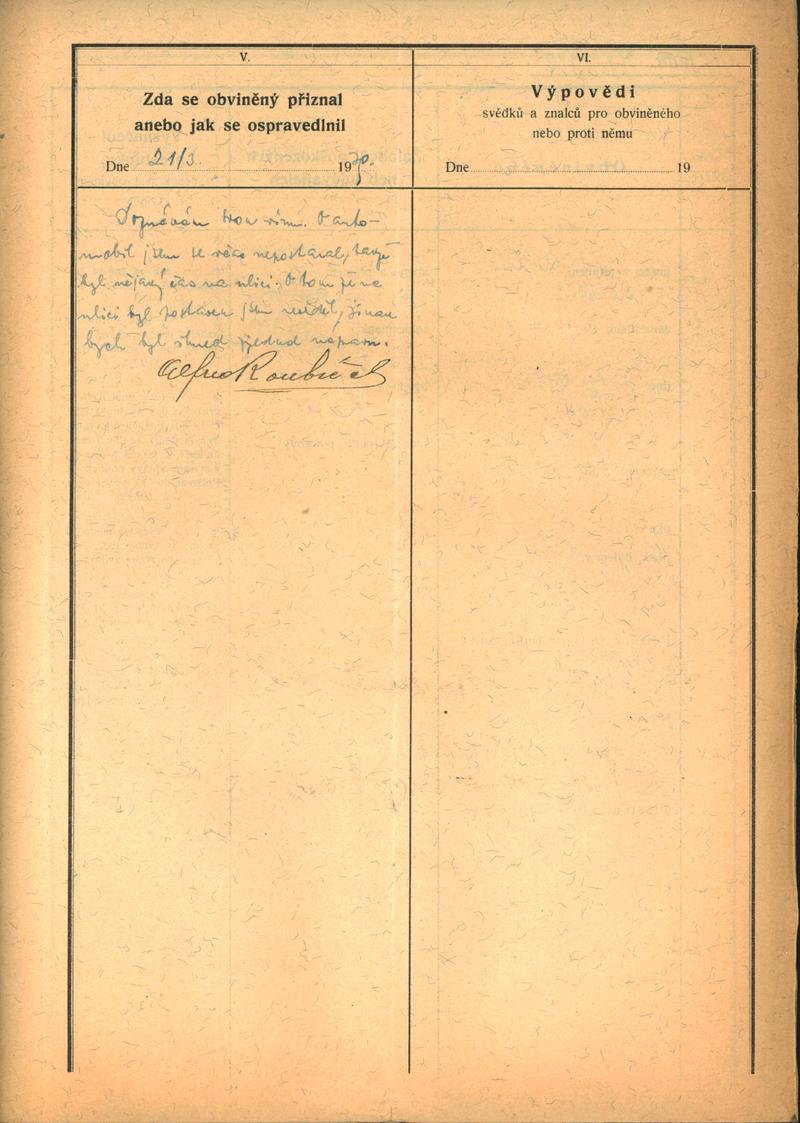 V.
Zda se obviněný přiznal
anebo jak se ospravedlnil
Dne 21/3. 19
VI.
Výpovědi
svědků a znalců pro obviněného
nebo proti němu
Dne 19
vinu. O auto-
mobil jsem se včas nepostaral, takže
byl nějaký čas na ulici. O tom že na
ulici byl postaven jsem nevěděl, jinak
bych byl ihned zjednal nápravu.
Alfred Roubíček